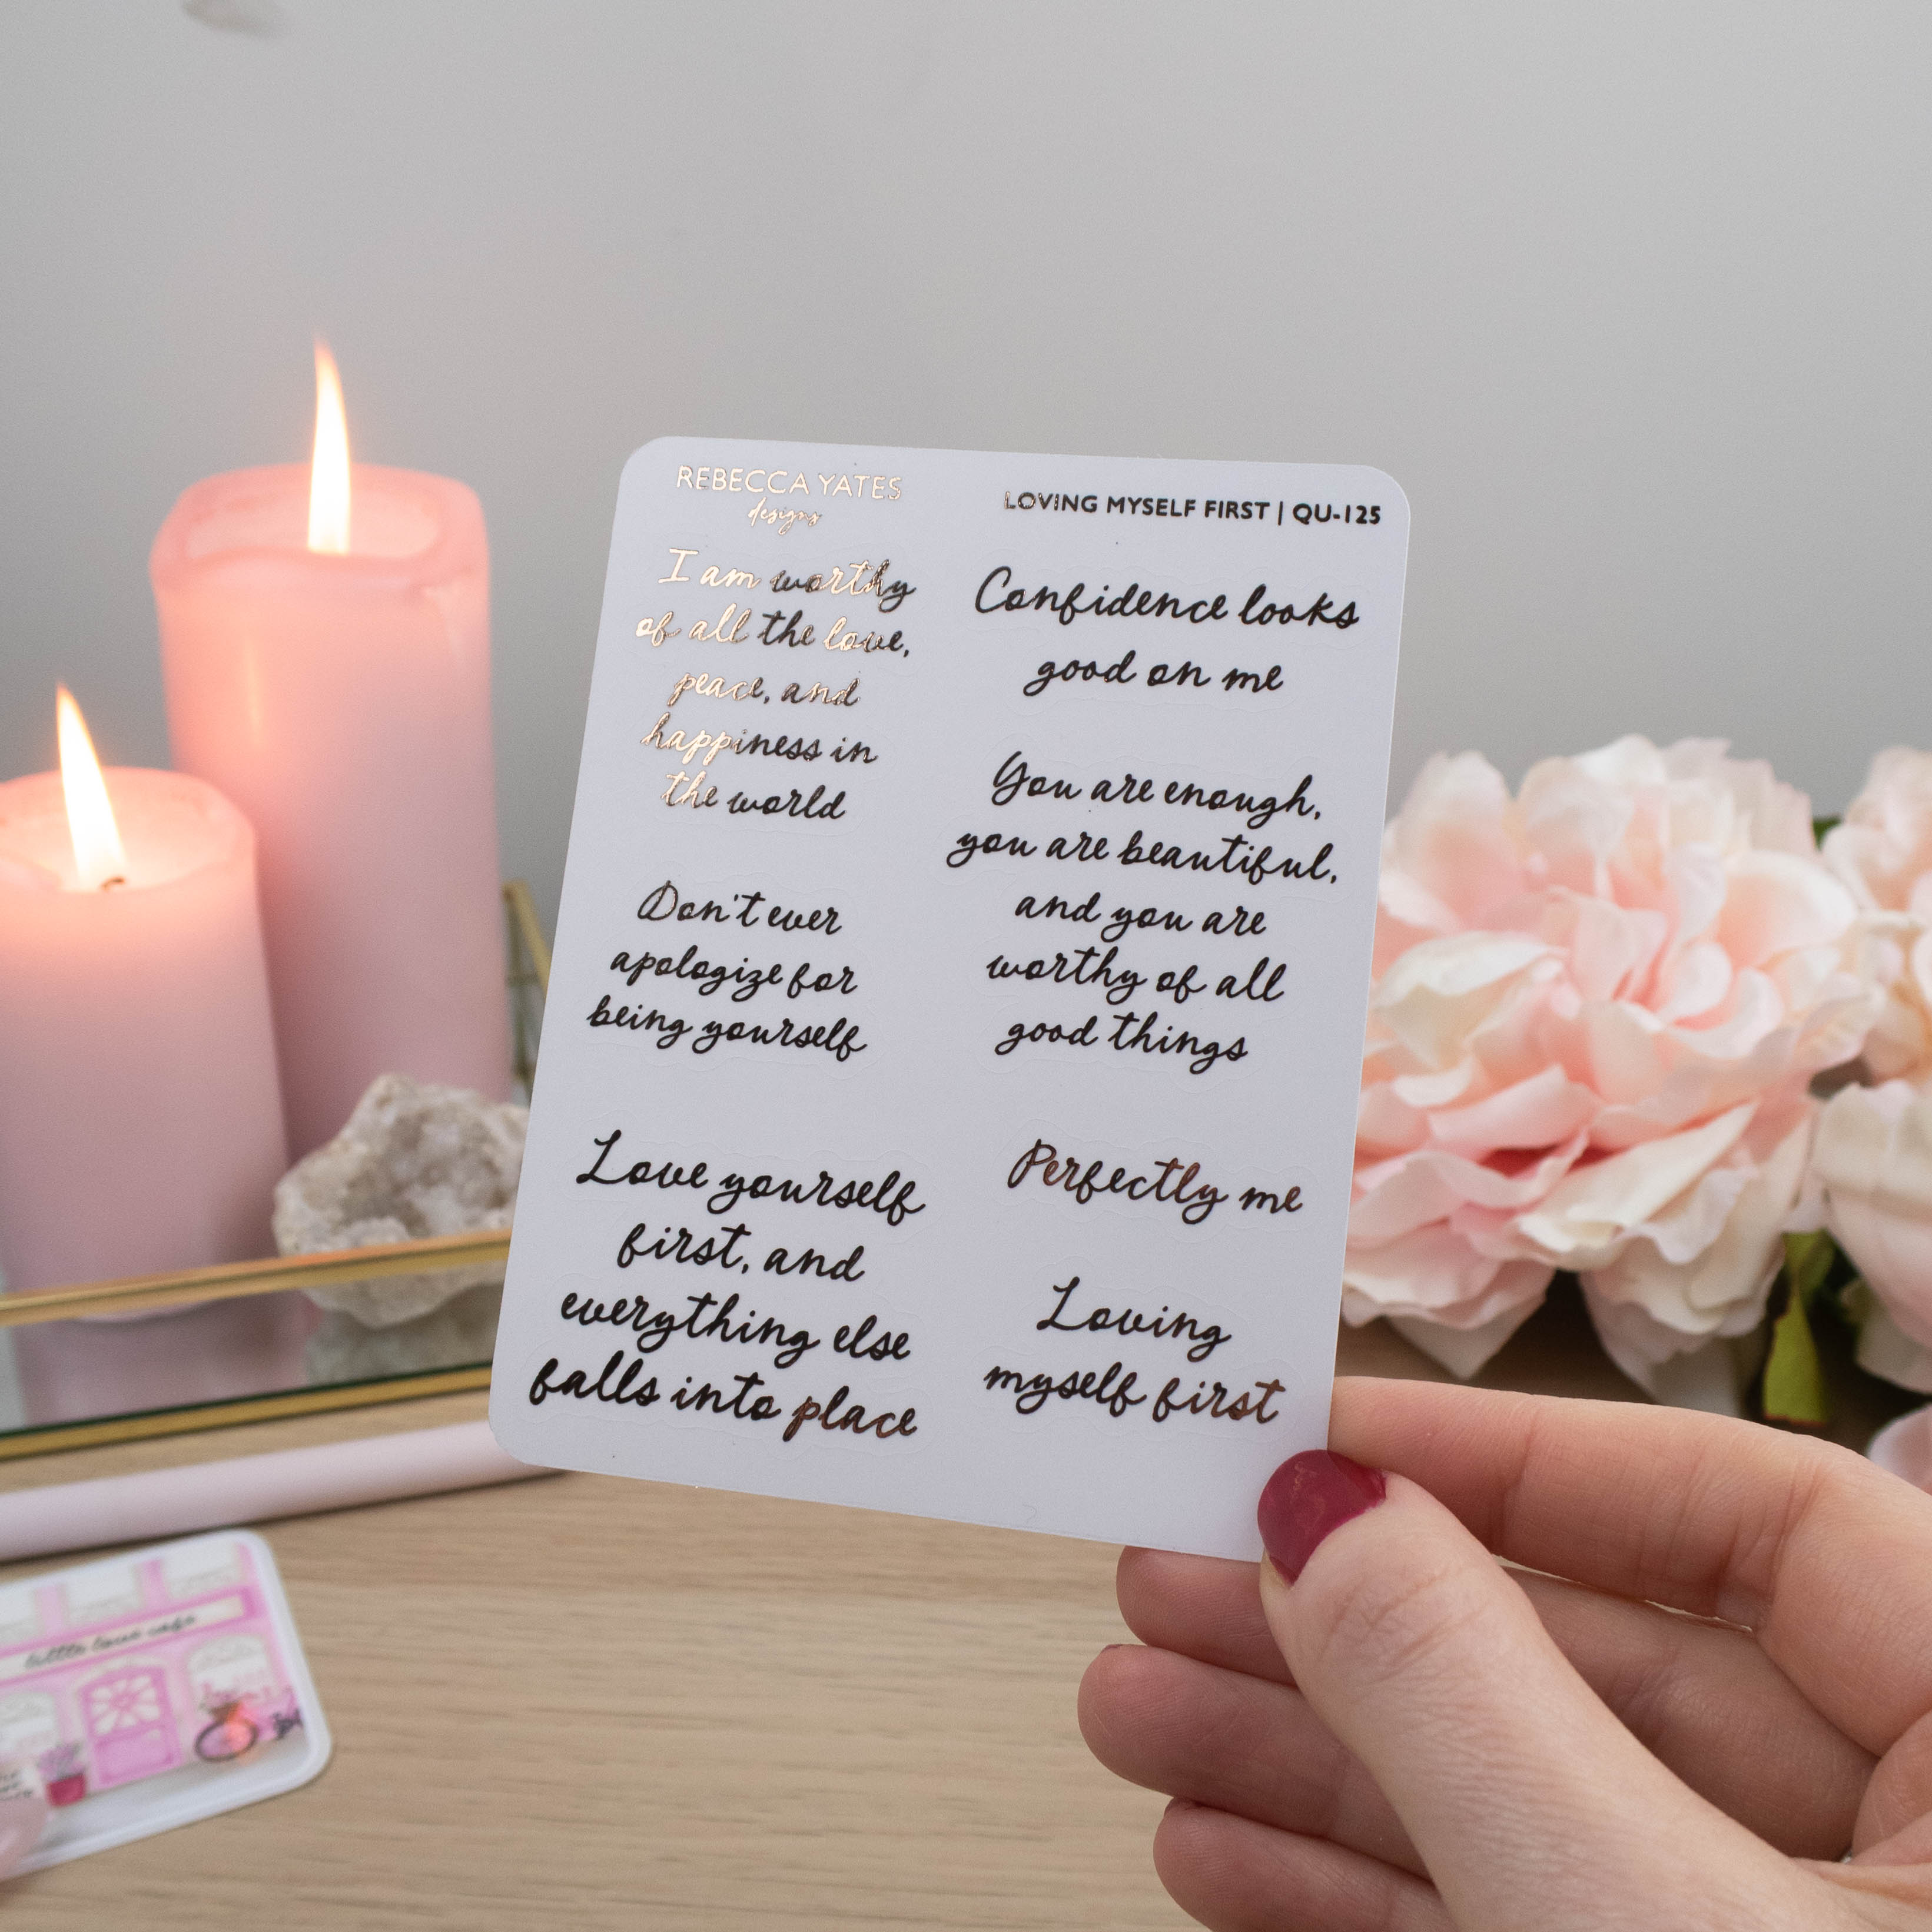 REBECCA YATES
designs
LOVING MYSELF FIRST | QU-125
I am worthy
of all the love,
peace, and
happiness in
the world
Don't ever
apologize for
being yourself
Love yourself
first, and
everything else
falls into place
Confidence looks
good on me
You are enough,
you are beautiful,
and you are
worthy of all
good things
Perfectly me
Loving
myself first
little love cafe